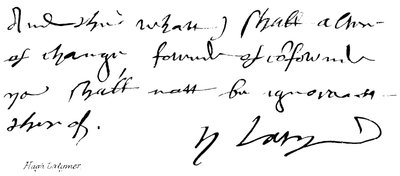 And this what I shall alter
of change fowend of cōfowend
you shall nott be ignorantt
therof.
H Latym
Hugh Latymer.